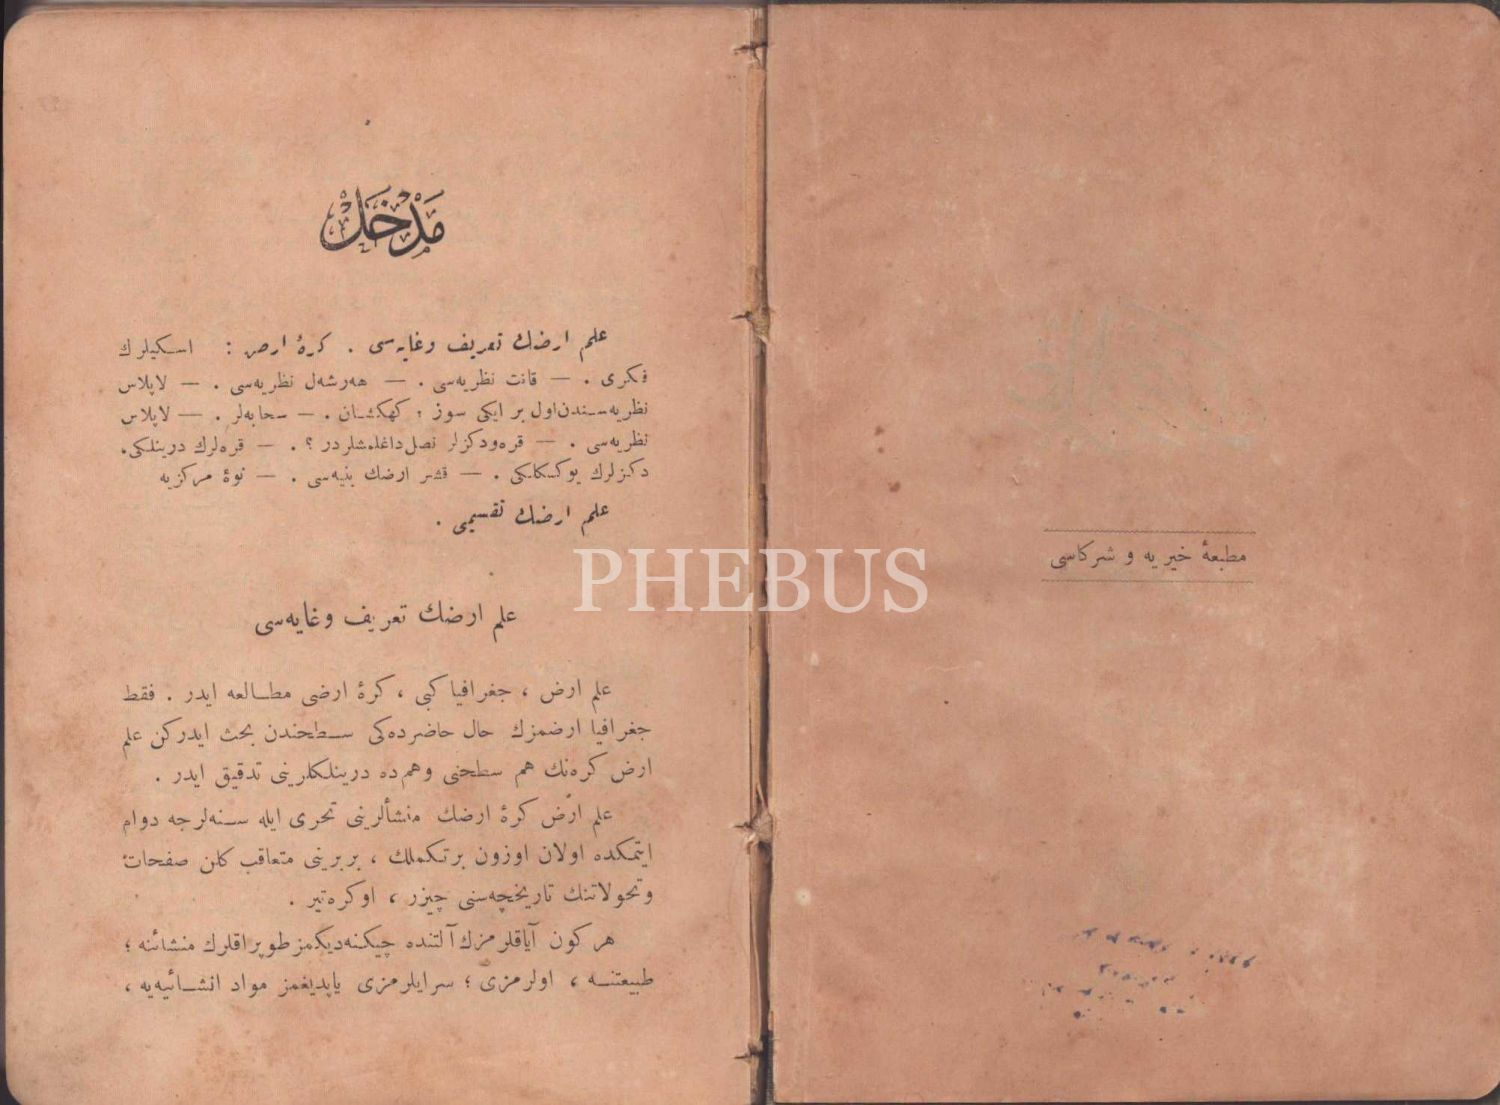 مطبعهٔ خیریه و شركاسی
مَدْخَلْ
علم ارضك تعریف وغایه‌سی . كرهٔ ارض : اسكیلرك
فكری . — قانت نظریه‌سی . — هه‌رشه‌ل نظریه‌سی . — لاپلاس
نظریه‌سندن‌اول بر ایكی سوز ؛ كهكشان . — سحابه‌لر . — لاپلاس
نظریه‌سی . — قره‌ودكزلر نصل‌داغلمشلردر ؟ . — قره‌لرك درینلكی،
دكزلرك یوكسكلكی . — قشر ارضك بنیه‌سی . — نوهٔ مركزیه
علم ارضك تقسیمی .
علم ارضك تعریف وغایه‌سی
علم ارض ، جغرافیا كبی ، كرهٔ ارضی مطالعه ایدر . فقط
جغرافیا ارضمزك حال حاضرده‌كی سطحندن بحث ایدركن علم
ارض كره‌نك هم سطحنی وهم‌ده درینلكلرینی تدقیق ایدر .
علم ارض كرهٔ ارضك منشألرینی تحری ایله سنه‌لرجه دوام
ایتمكده اولان اوزون برتكملك ، بربرینی متعاقب كلن صفحات
وتحولاتنك تاریخچه‌سنی چیزر ، اوكره‌تیر .
هركون آیاقلرمزك‌آلتنده چیكنه‌دیكمز طوپراقلرك منشائنه ؛
طبیعتنه ، اولرمزی ؛ سرایلرمزی یاپدیغمز مواد انشائیه‌یه ،
PHEBUS